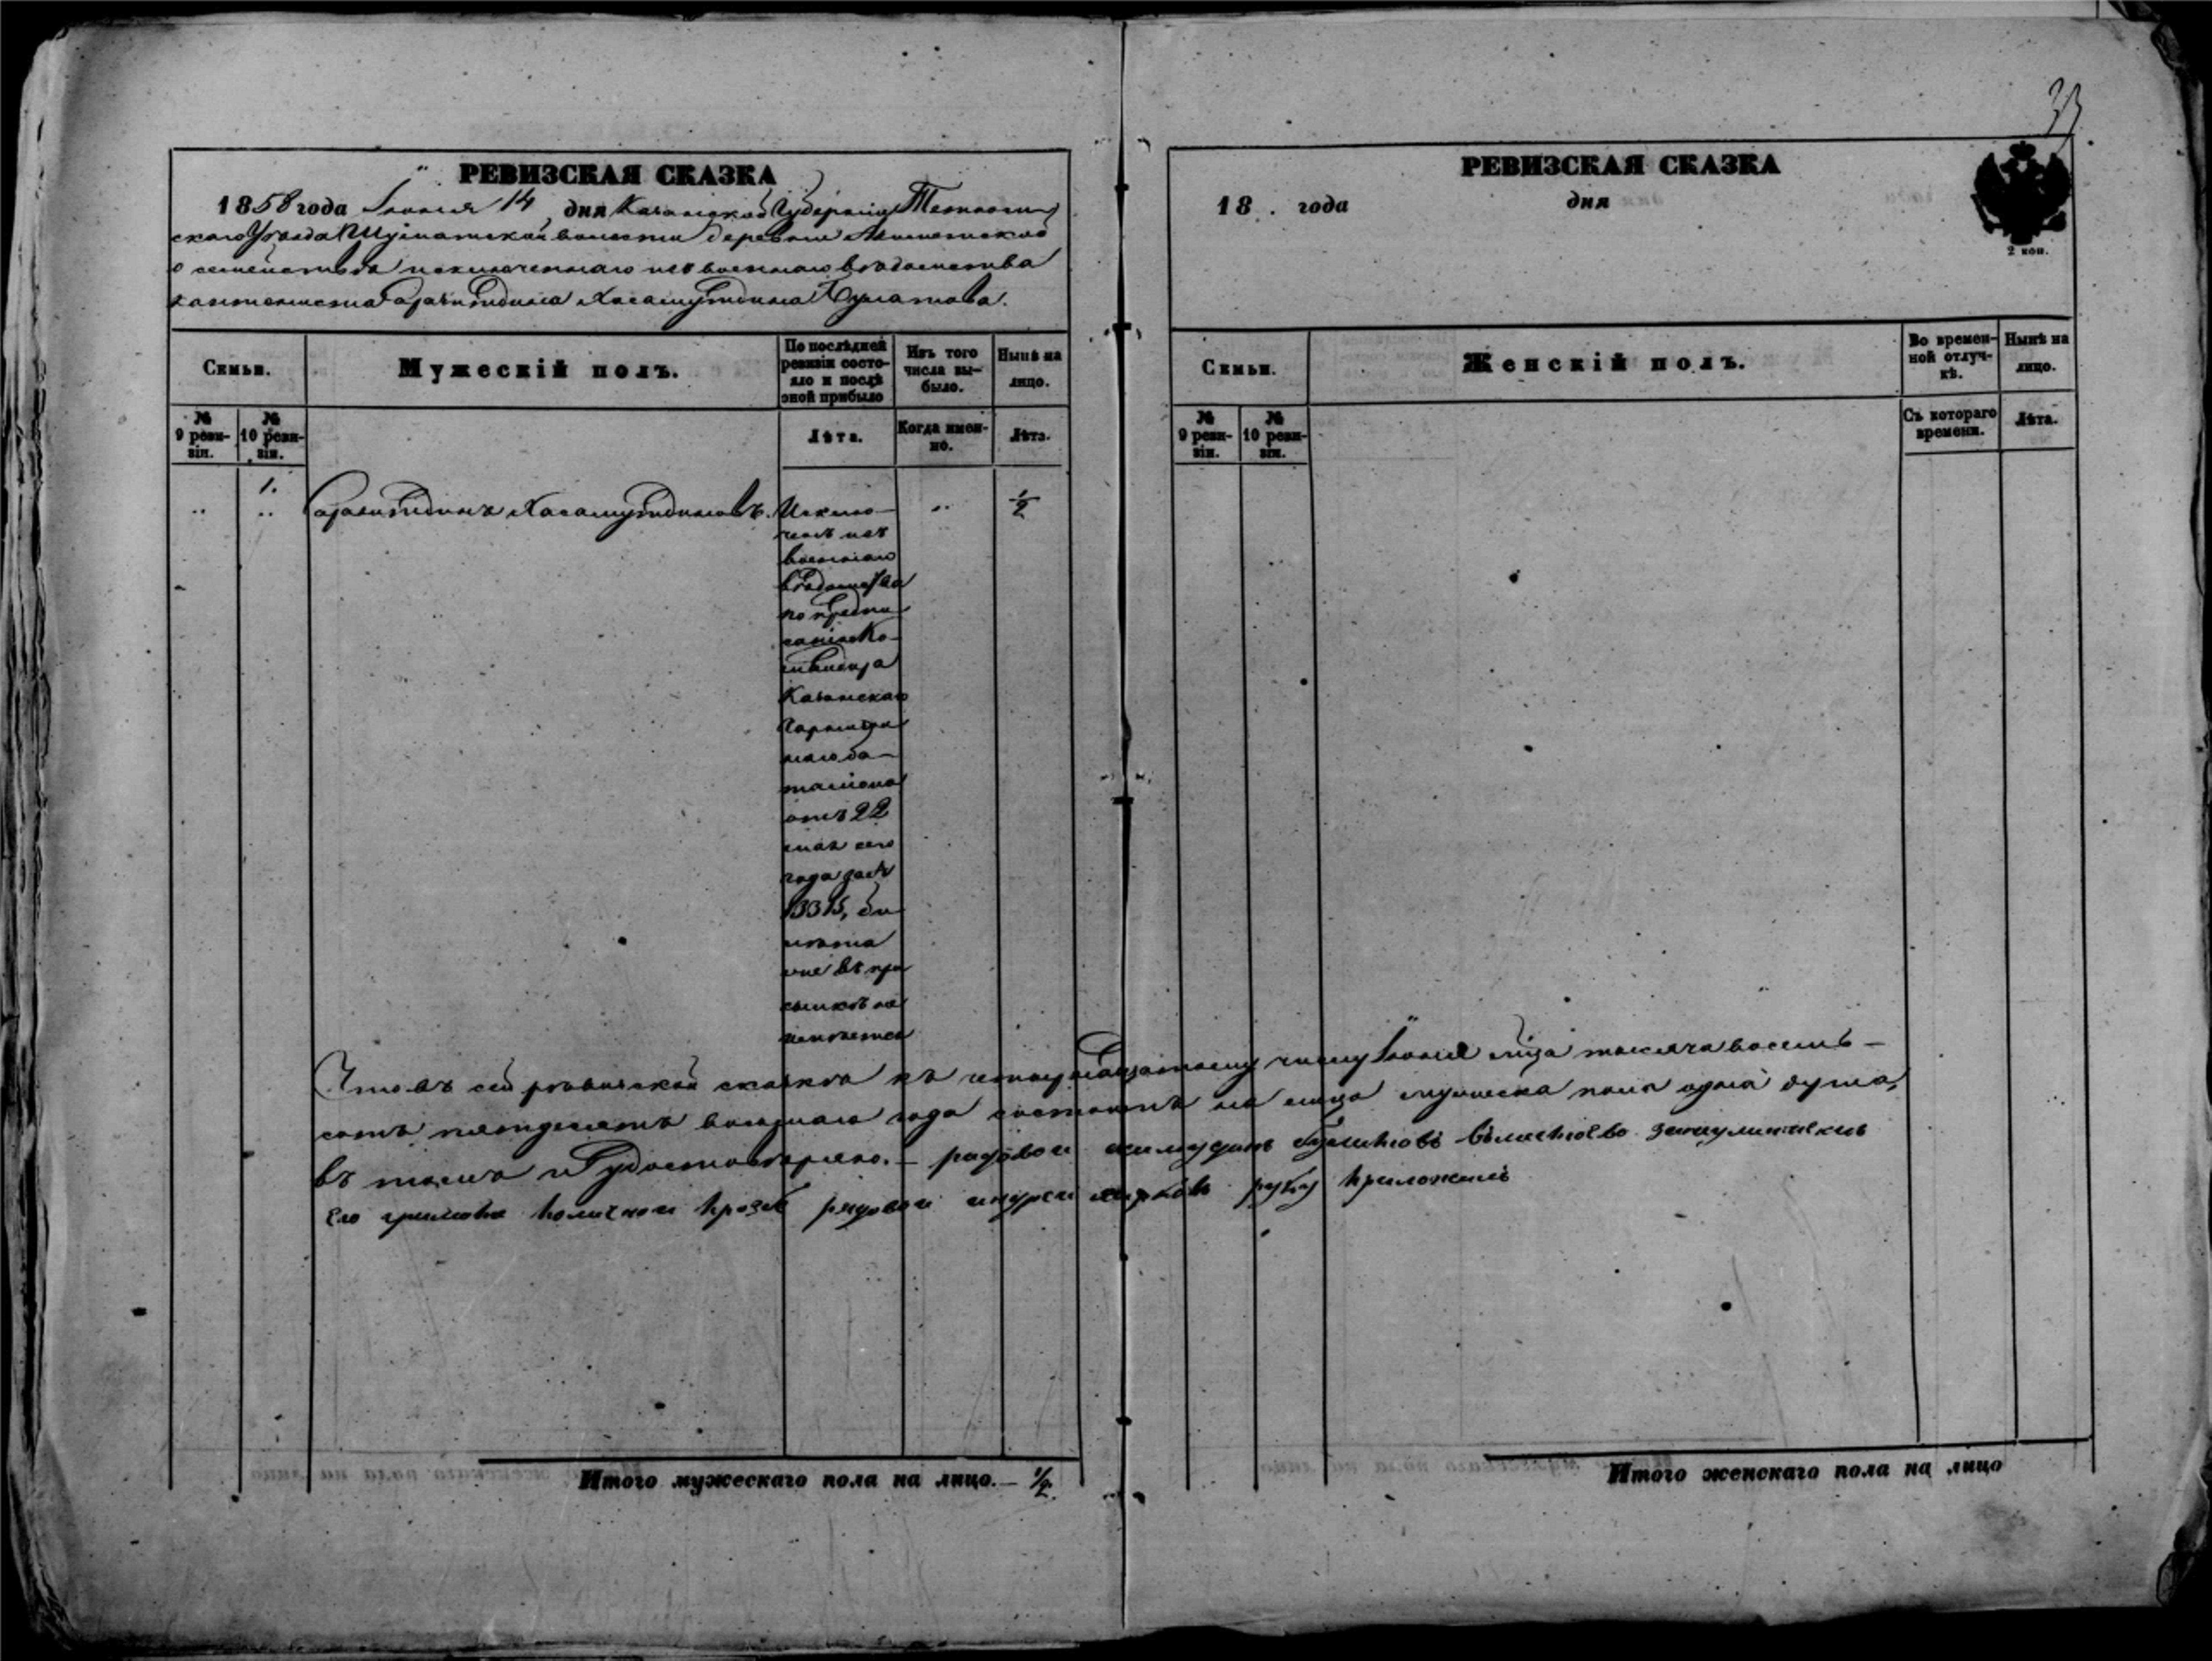 33
РЕВИЗСКАЯ СКАЗКА
1858 года Іюня 14 дня Казанской Губерніи Тетюш
скаго Уѣзда Шуматской волости деревни
о семействѣ исключеннаго изъ военнаго вѣдомства
кантониста Хасамутдина Булатова.
Семьи.
Мужескій полъ.
По послѣдней ревизіи состояло и послѣ оной прибыло
Изъ того числа выбыло.
Нынѣ на лицо.
№ 9 ревизіи.
№ 10 ревизіи.
Лѣта.
Когда именно.
Лѣта.
1.
Хасамутдиновъ.
Исклю-
ченъ изъ
военнаго
вѣдомства
по предпи
санію Ко-
мандира
Казанскаго
Гарнизон
наго ба-
таліона
отъ 22
мая сего
года за №
13315, би
лѣта
1/2
Что въ сей ревизской сказкѣ къ четырнадцатому числу Іюня мца тысяча восемь-
сотъ пятдесятъ восьмаго года состоитъ на лицо мужеска пола одна душа,
въ томъ и удостовѣряю. – рядовой
его грамоте рядовой руку приложилъ
Итого мужескаго пола на лицо. – 1/2
РЕВИЗСКАЯ СКАЗКА
18 . года дня
2 коп.
Семьи.
Женскій полъ.
Во временной отлучкѣ.
Нынѣ на лицо.
№ 9 ревизіи.
№ 10 ревизіи.
Съ котораго времени.
Лѣта.
Итого женскаго пола на лицо